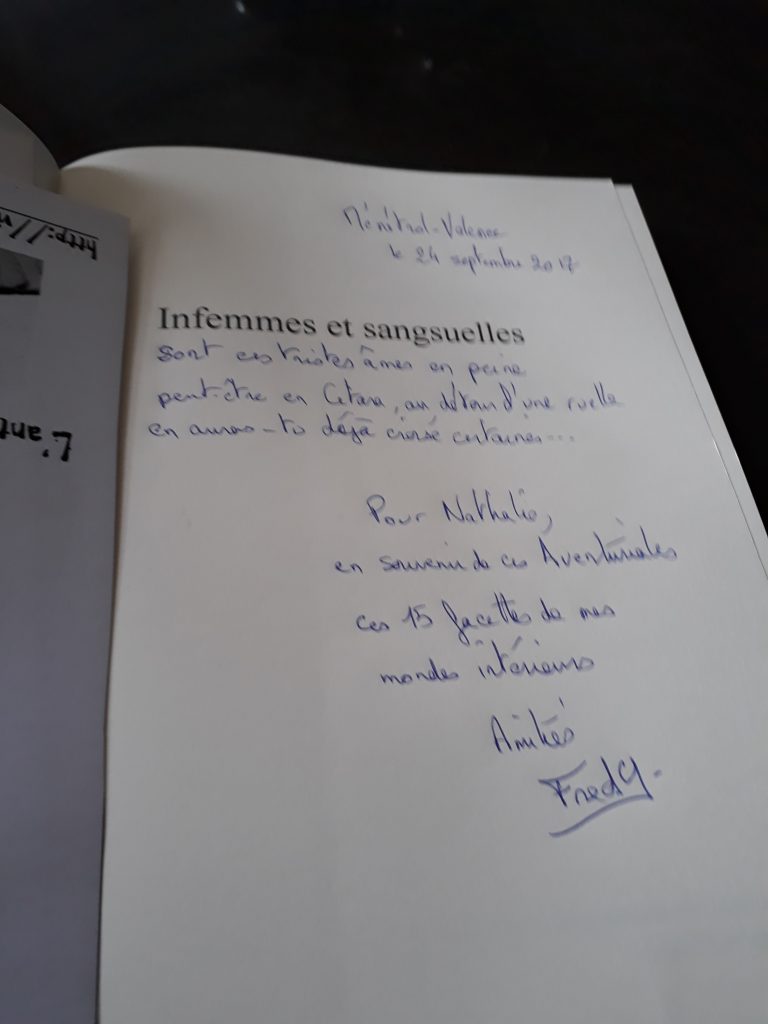 http://
L'ant
Ménétrol-
le 24 septembre 2017
Infemmes et sangsuelles
sont ces tristes âmes en peine
peut-être en , au détour d'une ruelle
en auras-tu déjà croisé certaines...
Pour Nathalie,
en souvenir de ces Aventuriales
ces 15 facettes de mes
mondes intérieurs
Amitiés
FredG.